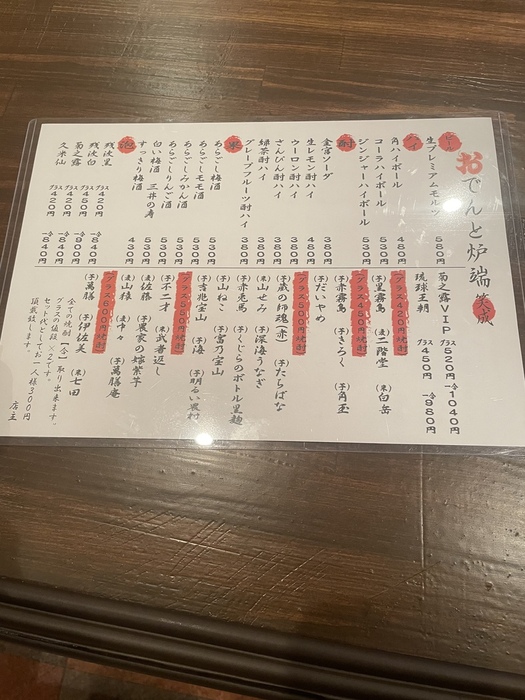 おでんと炉端
ビール
生プレミアムモルツ 580円
角ハイボール 480円
コーラハイボール 530円
ジンジャーハイボール 530円
酎
金宮ソーダ 380円
生レモン酎ハイ 480円
ウーロン酎ハイ 380円
さんぴん酎ハイ 380円
緑茶酎ハイ 380円
グレープフルーツ酎ハイ 380円
あらごし梅酒 530円
あらごしモモ酒 530円
あらごしみかん酒 530円
あらごしりんご酒 530円
白い梅酒 三井の寿 530円
すっきり梅酒 430円
残波黒 グラス420円 一合840円
残波白 グラス420円 一合840円
菊之露 グラス450円 一合900円
久米仙 グラス420円 一合840円
菊之露VIP グラス520円 一合1040円
琉球王朝 グラス450円 一合980円
グラス420円焼酎
(芋)黒霧島 (麦)二階堂 (米)白岳
グラス450円焼酎
(芋)赤霧島 (芋)きろく (芋)角玉
(芋)だいやめ
グラス500円焼酎
(芋)蔵の師魂(赤) (芋)たちばな
(米)山せみ (米)深海うなぎ
(芋)赤兎馬 (芋)くじらのボトル黒麹
(芋)山ねこ (芋)富乃宝山
(芋)吉兆宝山 (芋)海
(芋)不二才 (芋)明るい農村
グラス550円焼酎
(麦)佐藤 (米)武者返し
(麦)山猿 (芋)農家の嫁紫芋
(麦)中々 (芋)萬膳庵
グラス600円焼酎
(芋)萬膳 (芋)伊佐美 (米)七田
全ての焼酎【一合】取り出来ます。
グラスの値段×2です。
セット代としてお一人様300円
頂戴致します。
店主